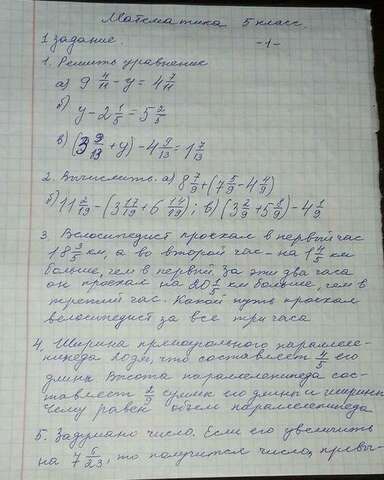 Математика 5 класс.
1 задание. -1-
1. Решить уравнение
а) 9 4/11 - у = 4 7/11
б) у - 2 1/5 = 5 2/3
в) (3 9/13 + у) - 4 9/13 = 1 7/13
2. Вычислите. а) 8 7/9 + (7 5/9 - 4 4/9)
б) 11 2/19 - (3 17/19 + 6 14/19); в) (3 2/9 + 5 1/9) - 4 1/9
3. Велосипедист проехал в первый час
18 3/5 км, а во второй час - на 1 4/5 км
больше, чем в первый за эти два часа
он проехал на 20 1/5 км больше, чем в
третий час. Какой путь проехал
велосипедист за все три часа
4. Ширина прямоугольного параллеле-
пипеда 20 дм, что составляет 4/5 его
длины Высота параллелепипеда сос-
тавляет 2/9 суммы его длины и ширины
Чему равен объем параллелепипеда
5. Задумано число. Если его увеличить
на 7 5/23, то получится число, превы-